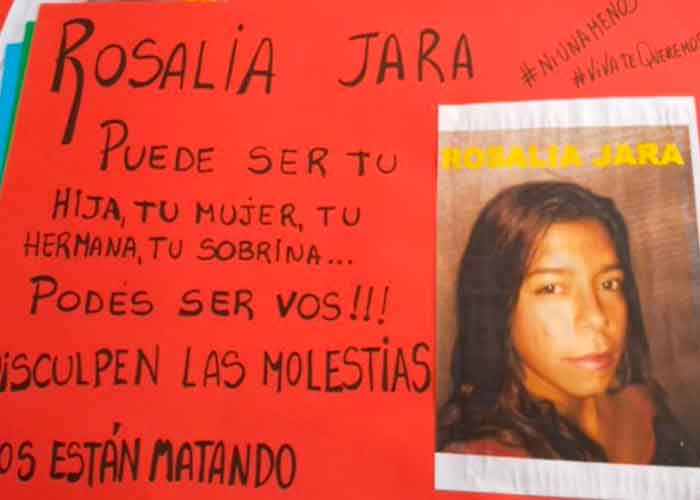 ROSALIA JARA
#NIUNAMENOS
#VIVATEQUEREMOS
ROSALIA JARA
PUEDE SER TU
HIJA, TU MUJER, TU
HERMANA, TU SOBRINA...
PODÉS SER VOS!!!
DISCULPEN LAS MOLESTIAS
OS ESTÁN MATANDO